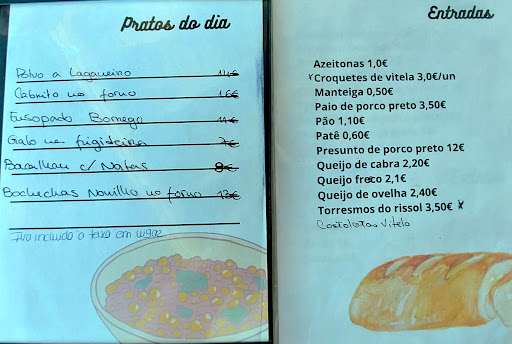 Pratos do dia
Polvo a Lagareiro 14€
Cabrito no forno 16€
Ensopado Borrego 14€
Galo na frigideira 7€
Bacalhau c/ Natas 8€
Bochechas Novilho no forno 13€
Iva incluido a taxa em vigor
Entradas
Azeitonas 1,0€
Croquetes de vitela 3,0€/un
Manteiga 0,50€
Paio de porco preto 3,50€
Pão 1,10€
Patê 0,60€
Presunto de porco preto 12€
Queijo de cabra 2,20€
Queijo fresco 2,1€
Queijo de ovelha 2,40€
Torresmos do rissol 3,50€
Costoletas Vitela